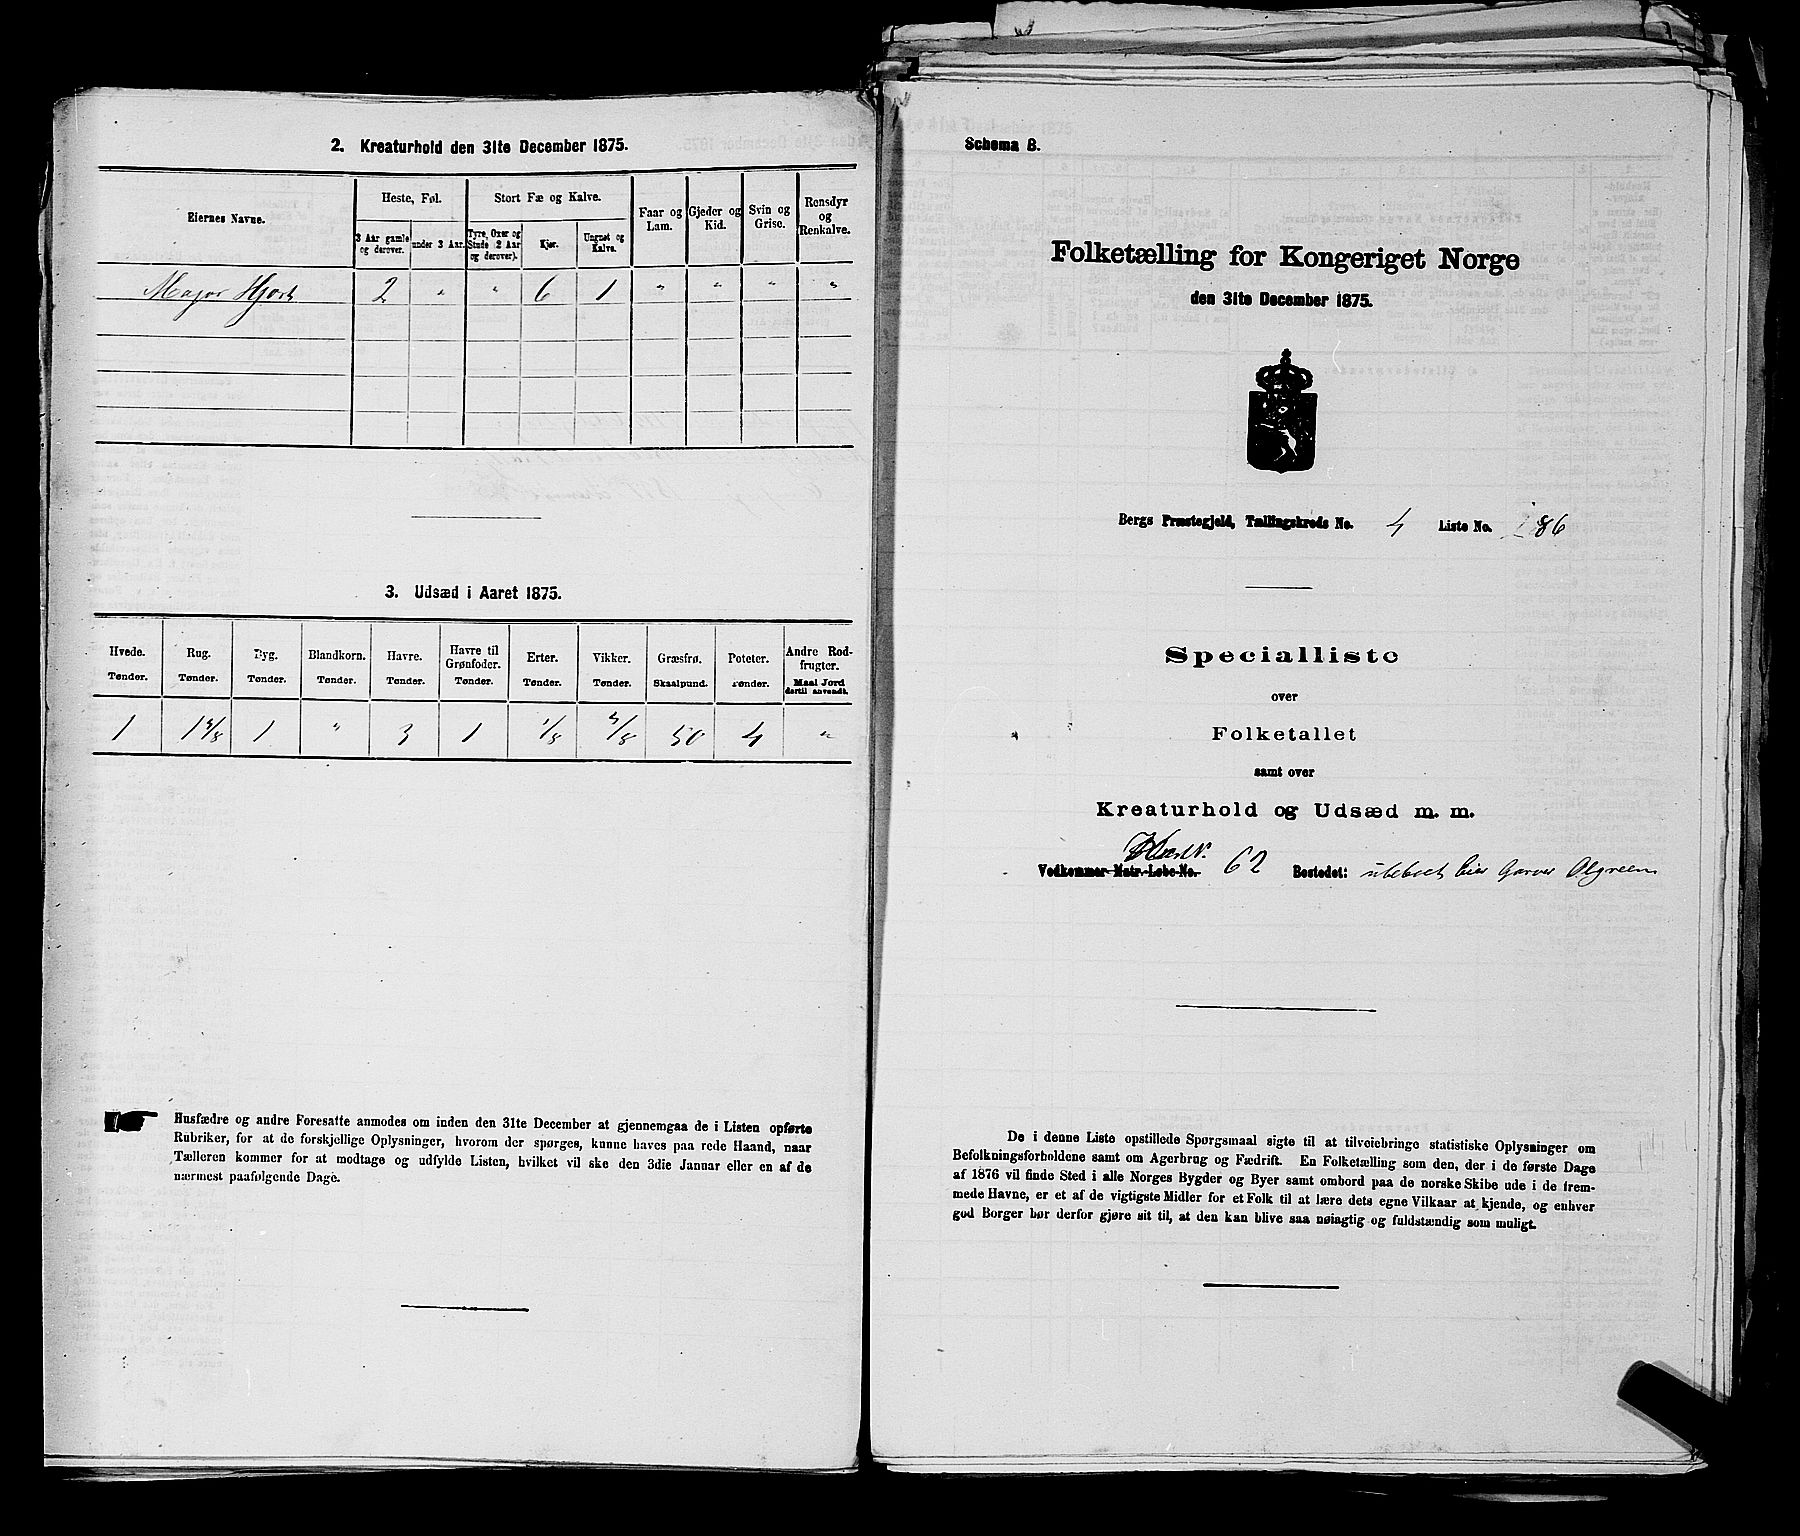 2. Kreaturhold den 31te December 1875.
Eiernes Navne.
Heste, Føl.
Stort Fæ og Kalve.
Faar og Lam.
Gjeder og Kid.
Svin og Grise.
Rensdyr og Renkalve.
3 Aar gamle og derover.
under 3 Aar.
Tyre, Oxer og Stude (2 Aar og derover).
Kjør.
Ungnøt og Kalve.
Major Hjort 2 " " 6 1 " " " "
3. Udsæd i Aaret 1875.
Hvede. Rug. Byg. Blandkorn. Havre. Havre til Grønfoder. Erter. Vikker. Græsfrø. Poteter. Andre Rodfrugter.
Tønder. Tønder. Tønder. Tønder. Tønder. Tønder. Tønder. Tønder. Skaalpund. Tønder. Maal Jord dertil anvendt.
1 1 3/8 1 " 3 1 1/8 3/8 50 4 "
Husfædre og andre Foresatte anmodes om inden den 31te December at gjennemgaa de i Listen opførte
Rubriker, for at de forskjellige Oplysninger, hvorom der spørges, kunne haves paa rede Haand, naar
Tælleren kommer for at modtage og udfylde Listen, hvilket vil ske den 3die Januar eller en af de
nærmest paafølgende Dage.
Schema 8.
Folketælling for Kongeriget Norge
den 31te December 1875.
Bergs Præstegjeld, Tællingskreds No. 4 Liste No. 86
Specialliste
over
Folketallet
samt over
Kreaturhold og Udsæd m. m.
Vedkommer Matr.-Løbe-No. 62 Bostedet:
De i denne Liste opstillede Spørgsmaal sigte til at tilveiebringe statistiske Oplysninger om
Befolkningsforholdene samt om Agerbrug og Fædrift. En Folketælling som den, der i de første Dage
af 1876 vil finde Sted i alle Norges Bygder og Byer samt ombord paa de norske Skibe ude i de frem-
mede Havne, er et af de vigtigste Midler for et Folk til at lære dets egne Vilkaar at kjende, og enhver
god Borger bør derfor gjøre sit til, at den kan blive saa nøiagtig og fuldstændig som muligt.